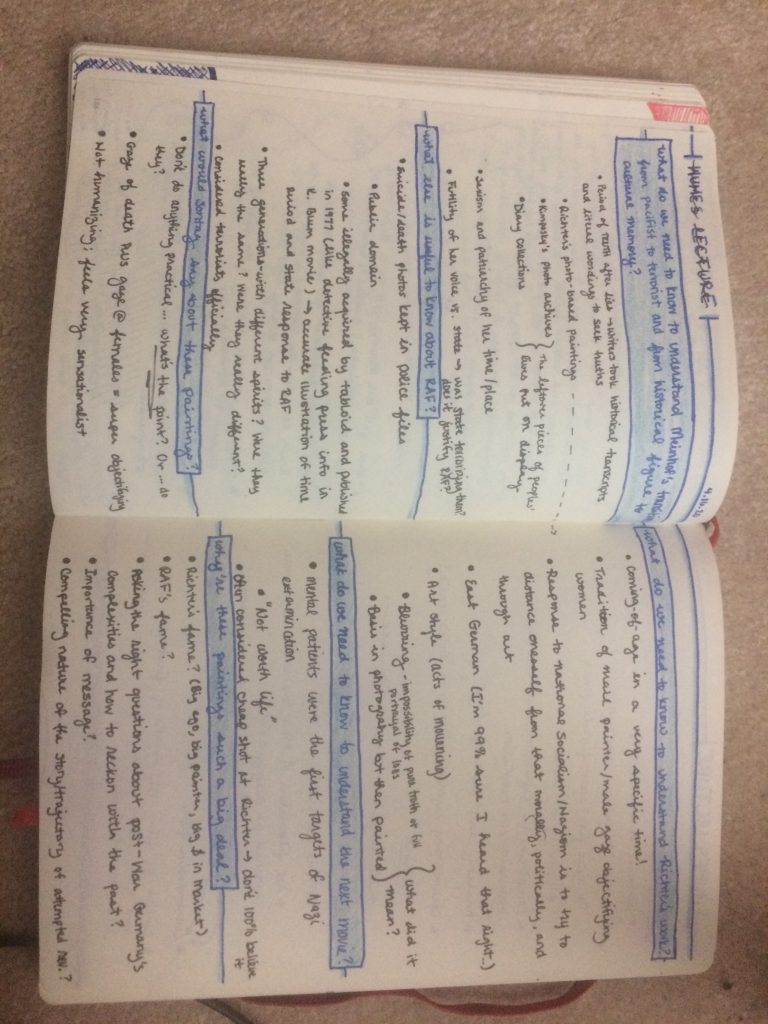 HUMES LECTURE
9.16.20
What do we need to know to understand Meinhof's transition
from pacifist to terrorist and from historical figure to
cultural memory?
• Period of truth after lies → writers took historical transcripts
and literal wordings to seek truths
• Richter's photo-based paintings
• Rimpsky's photo archives } The leftover pieces of peoples'
• Diary collections } lives put on display
• Sexism and patriarchy of her time/place
• Futility of her voice vs. state → was state terrorizing them?
does it justify RAF?
What else is useful to know about RAF?
• Suicide/death photos kept in police files
• Public domain
• Some illegally acquired by tabloid and published
in 1977 (like detective feeding press info in
K. Blum movie) → accurate illustration of time
period and state response to RAF
• Three generations - with different spirits? Were they
really the same? Were they really different?
• Considered terrorists officially
What would Sontag say about these paintings?
• Don't do anything practical... what's the point? Or... do
they?
• Gaze of death plus gaze @ females = super objectifying
• Not humanizing; feels very sensationalist
What do we need to know to understand Richter's work?
• Coming-of age in a very specific time!
• Tradition of male painter/male gaze objectifying
women
→ • Response to National Socialism/Nazism is to try to
distance oneself from that morally, politically, and
through art
• East German (I'm 99% sure I heard that right...)
• Art Style (acts of mourning)
• Blurring - impossibility of pure truth or full
portrayal of lives
• Basis in photography but then painted } what did it
mean?
What do we need to know to understand the next movie?
• mental patients were the first targets of Nazi
extermination
• "Not worth life"
• Often considered cheap shot at Richter → don't 100% believe
it
Why're these paintings such a big deal?
• Richter's fame? (Big ego, big painter, big $ in market)
• RAF's fame?
• Asking the right questions about post-War Germany's
complexities and how to reckon with the past?
• Importance of message?
• Compelling nature of the story/trajectory of attempted rev.?